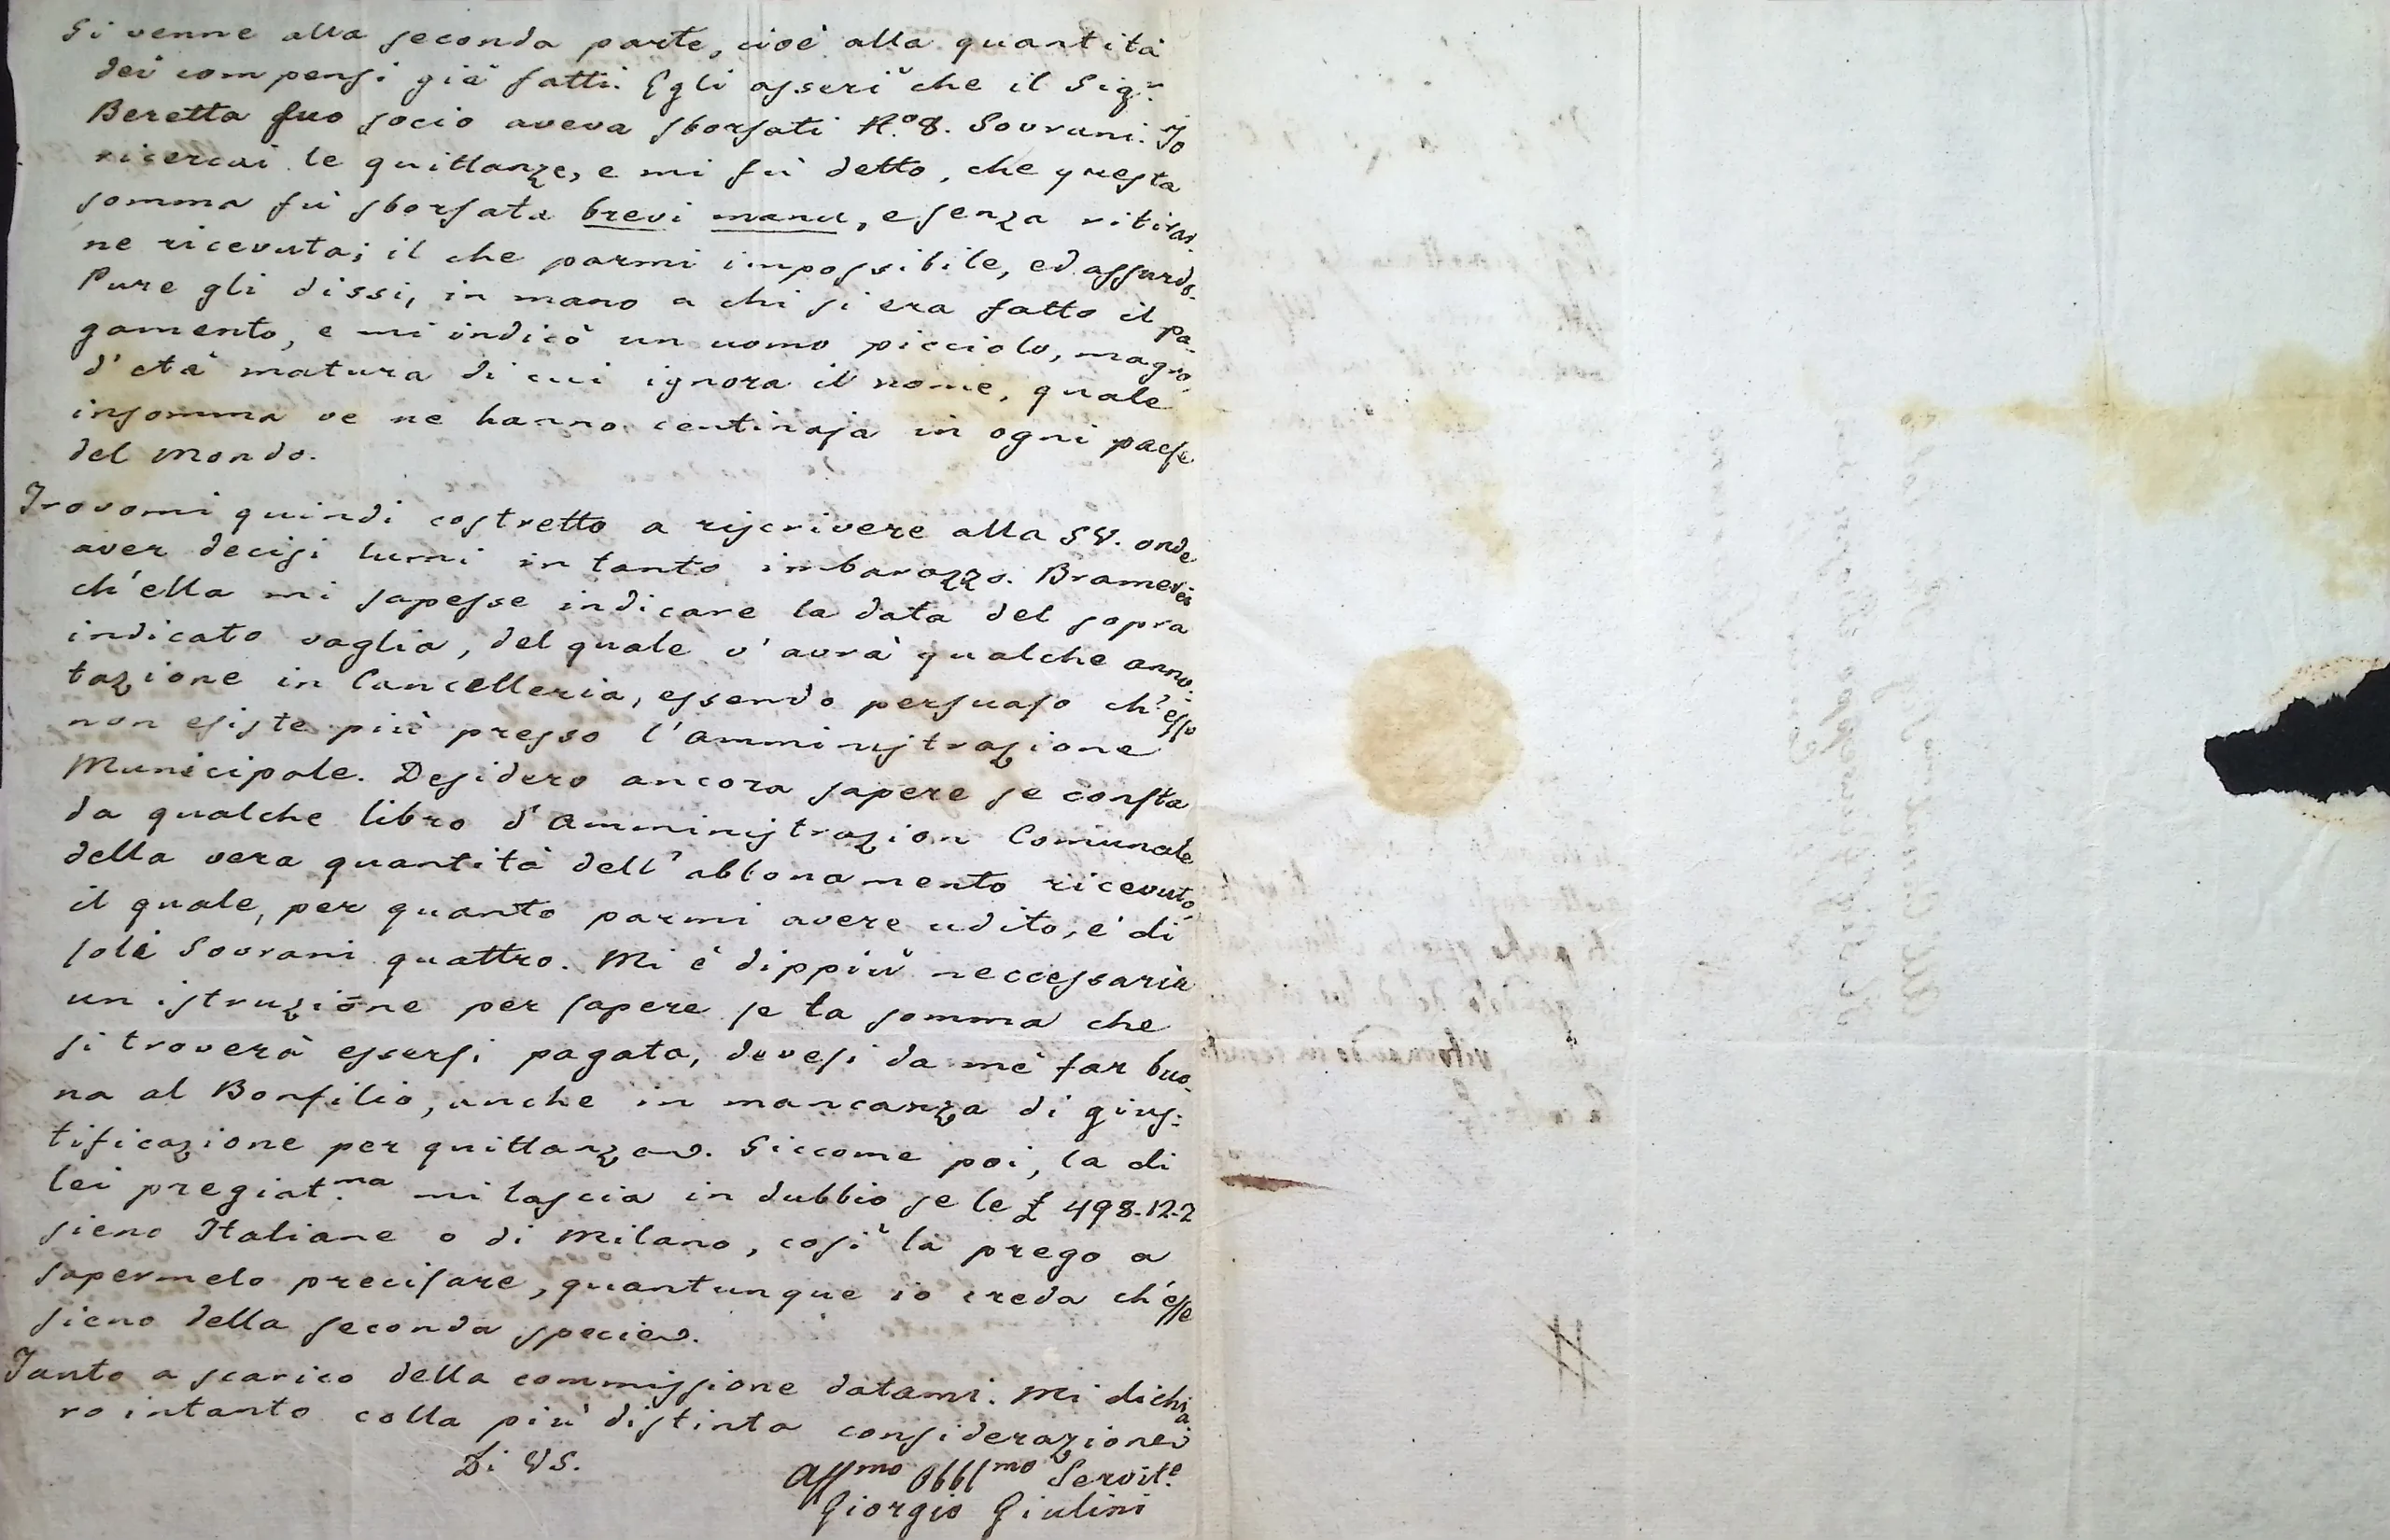 Si venne alla seconda parte, cioè alla quantità
dei compensi già fatti. Egli asserì che il Sigr.
Beretta suo socio aveva sborsati N.o 8. Sovrani. Io
ricercai le quittanze, e mi fù detto, che questa
somma fù sborsata brevi manu, e senza ritirar-
ne ricevuta; il che parmi impossibile, ed assurdo.
Pure gli dissi, in mano a chi si era fatto il pa-
gamento, e mi indicò un uomo picciolo, magro,
d'età matura di cui ignora il nome, quale
insomma ve ne hanno centinaja in ogni paese
del Mondo.
Trovomi quindi costretto a riscrivere alla SV. onde
aver decisi lumi in tanto imbarazzo. Bramerei
ch'ella mi sapesse indicare la data del sopra
indicato vaglia, del quale v'avrà qualche anno-
tazione in Cancelleria, essendo persuaso ch'esso
non esiste più presso l'amministrazione
Municipale. Desidero ancora sapere se consta
da qualche libro d'Amministrazion Comunale
della vera quantità dell'abbonamento ricevuto,
il quale, per quanto parmi avere udito, è di
soli Sovrani quattro. Mi è dippiù neccessaria
un istruzione per sapere se la somma che
si troverà essersi pagata, devesi da me far buo-
na al Bonfilio, anche in mancanza di gius-
tificazione per quittanza. Siccome poi, la di
lei pregiat.ma mi lascia in dubbio se le £ 498.12.2
sieno Italiane o di Milano, così la prego a
sapermelo precisare, quantunque io creda ch'esse
sieno della seconda specie.
Tanto a scarico della commissione datami. Mi dichia
ro intanto colla più distinta considerazione
Di VS.
Affmo Obblmo Servite.
Giorgio Giulini